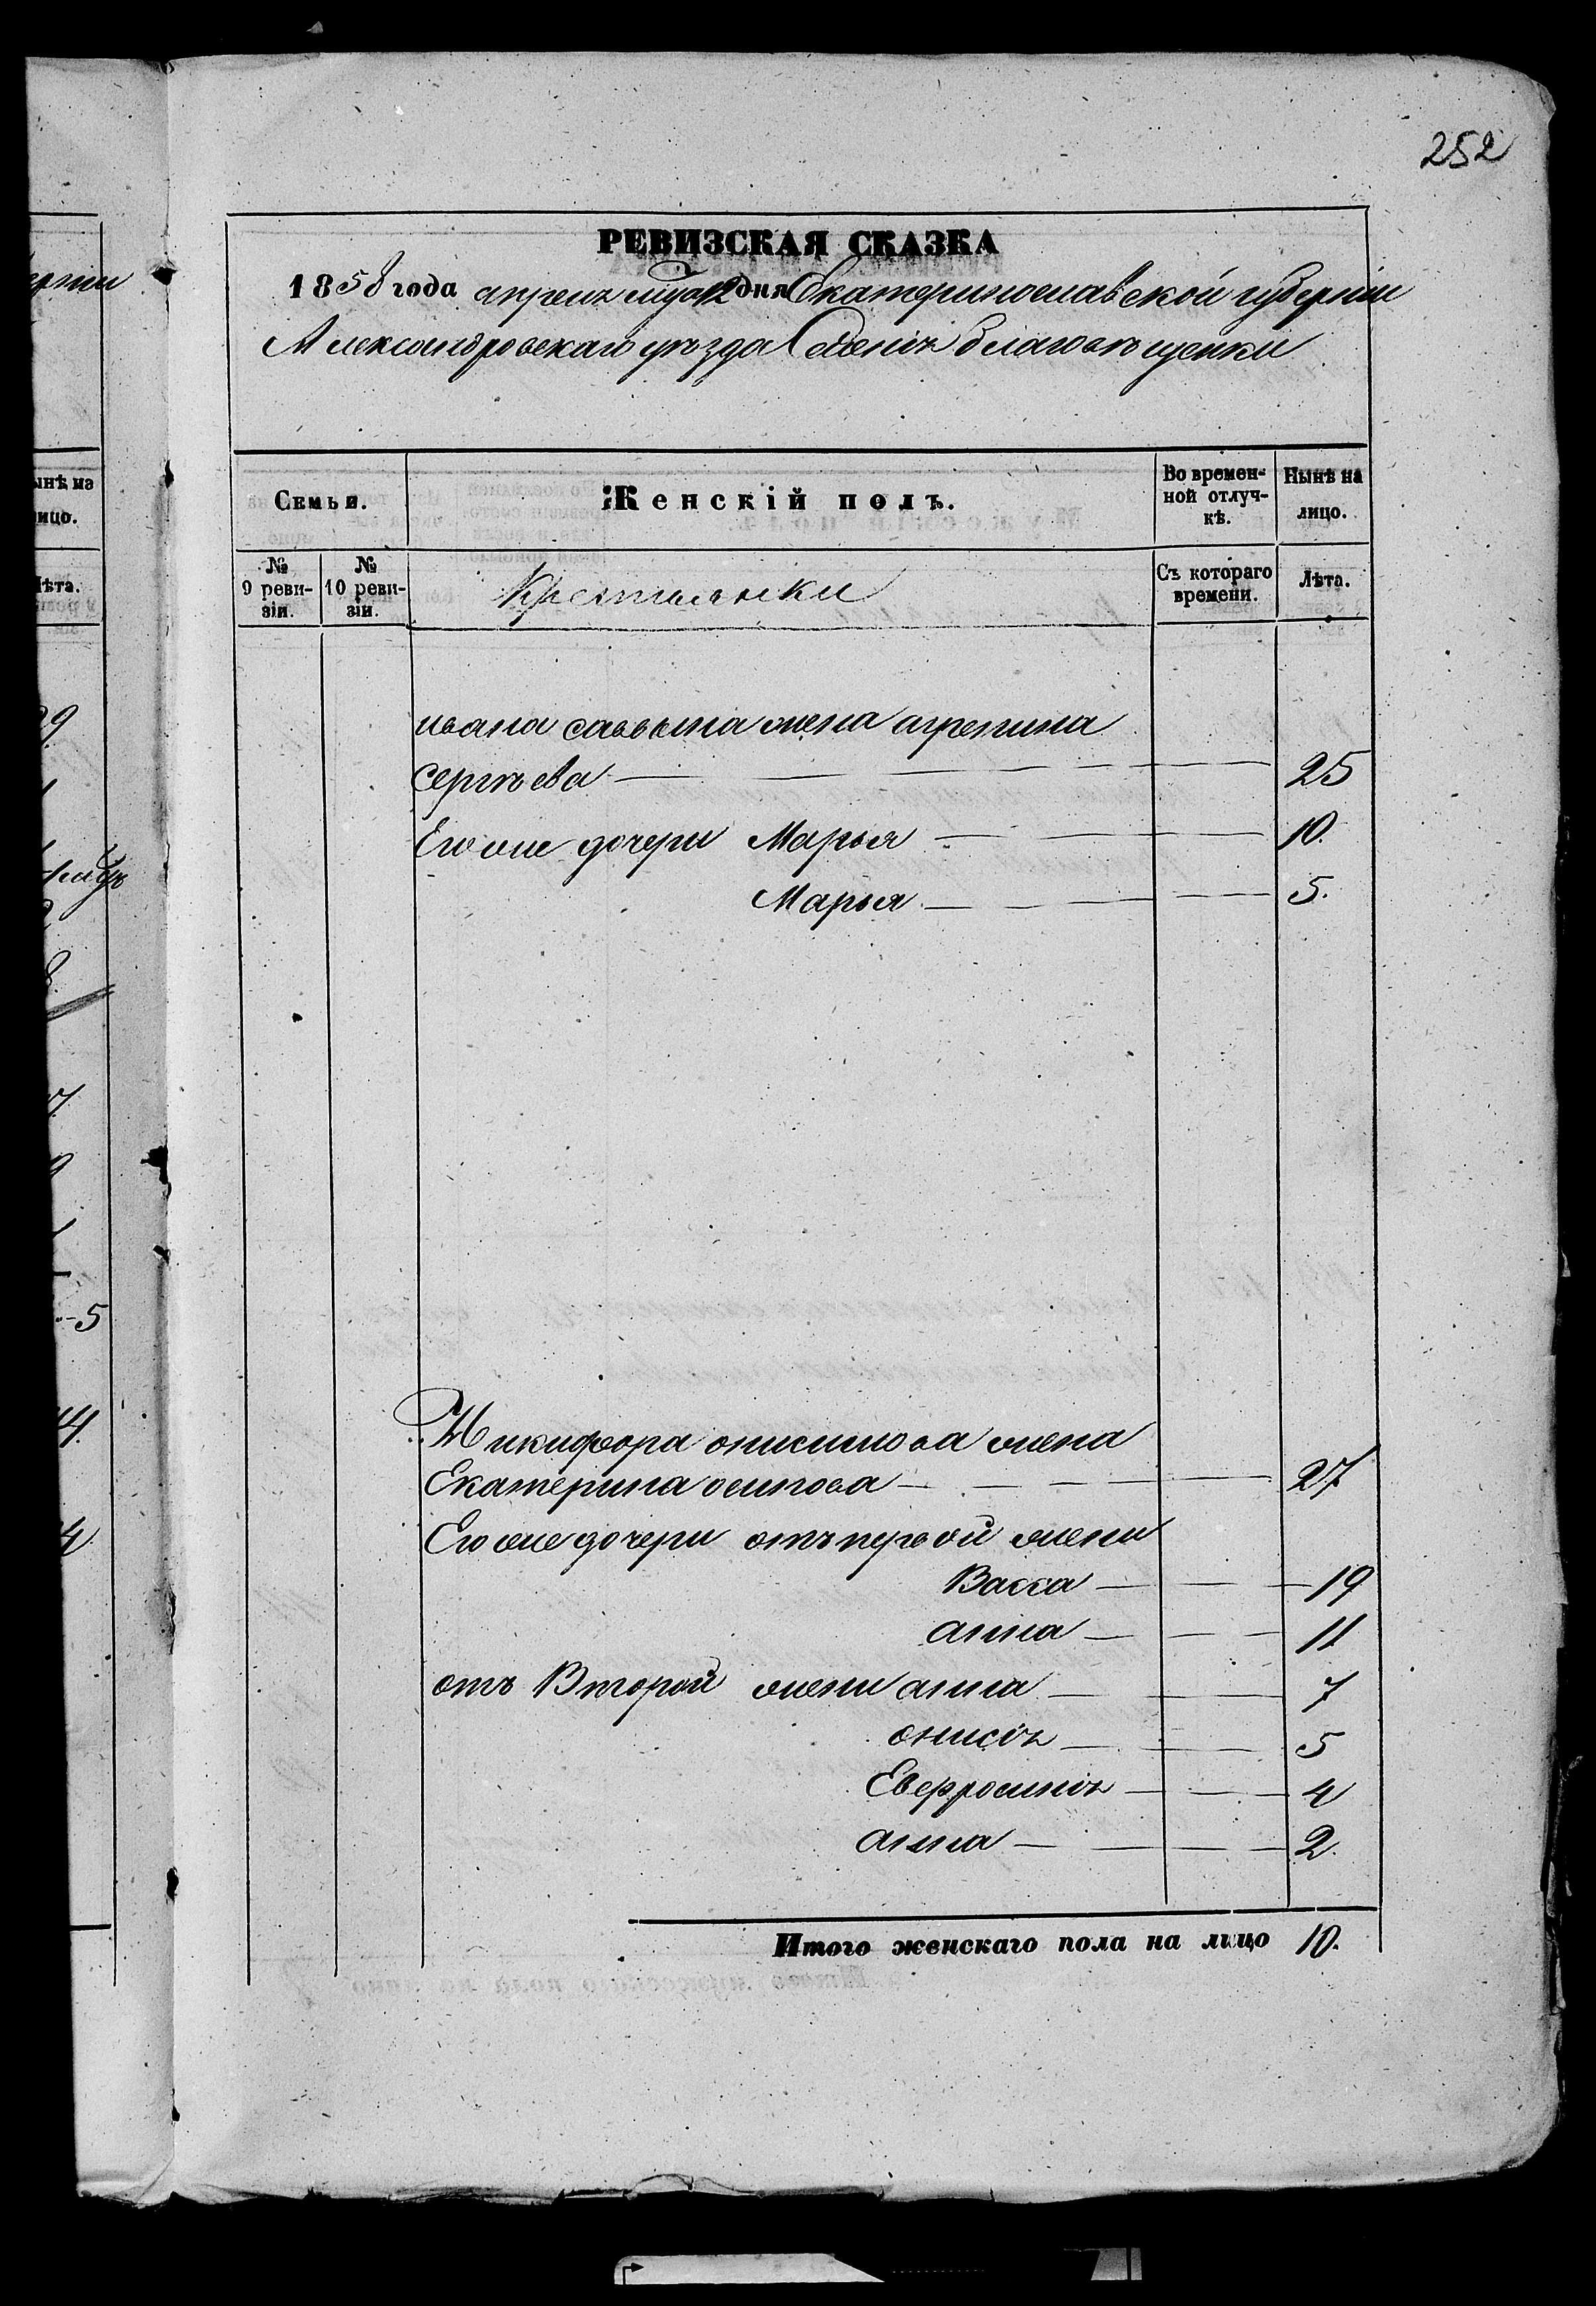 252
РЕВИЗСКАЯ СКАЗКА
1858 года апреля мца 12 дня Екатеринославской губернiи
Александровскаго уезда Селенiя благовещенки
Семьи.
Женскiй полъ.
Во времен-
ной отлуч-
кѣ.
Нынѣ на
лицо.
№
9 реви-
зiи.
№
10 реви-
зiи.
Крестьянки
Съ котораго
времени.
Лѣта.
ивана саввина жена агрепина
сергѣева 25
Его же дочери Марья 10.
Марья 5.
Никифора онисимова жена
Екатерина осипова 27
Его же дочери отъ первой жены
Васса 19
анна 11
отъ Второй жены анна 7
онисiя 5
Евфросинiя 4
анна 2.
Итого женскаго пола на лицо 10.